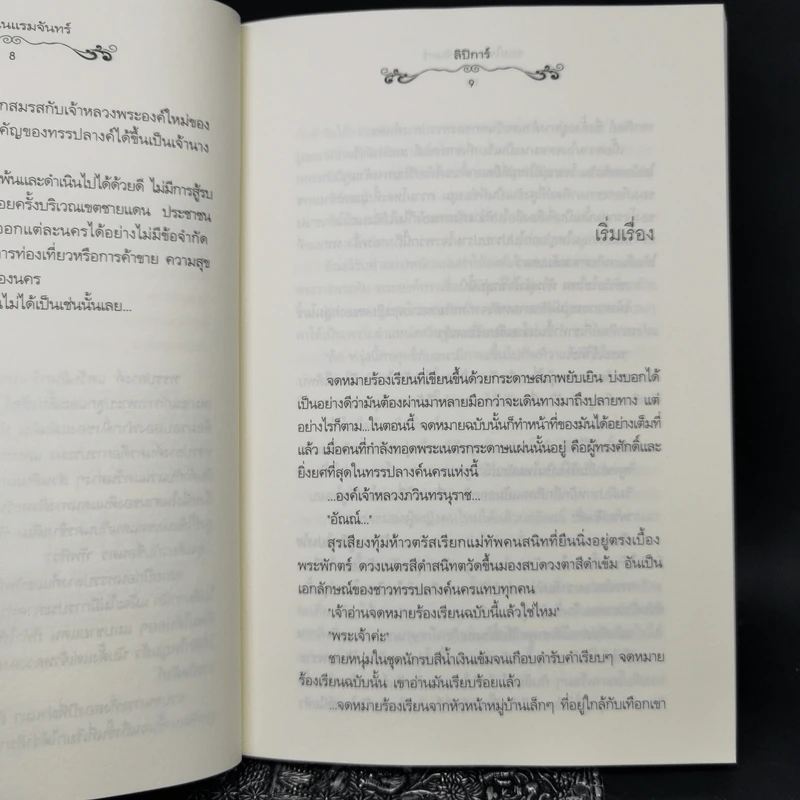 นแรมจันทร์
8
กสมรสกับเจ้าหลวงพระองค์ใหม่ของ
คัญของทรรปลางค์ได้ขึ้นเป็นเจ้านาง
พ้นและดำเนินไปได้ด้วยดี ไม่มีการสู้รบ
อยครั้งบริเวณเขตชายแดน ประชาชน
ออกแต่ละนครได้อย่างไม่มีข้อจำกัด
การท่องเที่ยวหรือการค้าขาย ความสุข
องนคร
นไม่ได้เป็นเช่นนั้นเลย...
ลิปิการ์
๙
เริ่มเรื่อง
จดหมายร้องเรียนที่เขียนขึ้นด้วยกระดาษสภาพยับเยิน บ่งบอกได้
เป็นอย่างดีว่ามันต้องผ่านมาหลายมือกว่าจะเดินทางมาถึงปลายทาง แต่
อย่างไรก็ตาม...ในตอนนี้ จดหมายฉบับนั้นก็ทำหน้าที่ของมันได้อย่างเต็มที่
แล้ว เมื่อคนที่กำลังทอดพระเนตรกระดาษแผ่นนั้นอยู่ คือผู้ทรงศักดิ์และ
ยิ่งยศที่สุดในทรรปลางค์นครแห่งนี้
...องค์เจ้าหลวงภวินทรนุราช...
'อัณณ์...'
สุรเสียงทุ้มห้าวตรัสเรียกแม่ทัพคนสนิทที่ยืนนิ่งอยู่ตรงเบื้อง
พระพักตร์ ดวงเนตรสีดำสนิทตวัดขึ้นมองสบดวงตาสีดำเข้ม อันเป็น
เอกลักษณ์ของชาวทรรปลางค์นครแทบทุกคน
'เจ้าอ่านจดหมายร้องเรียนฉบับนี้แล้วใช่ไหม'
'พระเจ้าค่ะ'
ชายหนุ่มในชุดนักรบสีน้ำเงินเข้มจนเกือบดำรับคำเรียบๆ จดหมาย
ร้องเรียนฉบับนั้น เขาอ่านมันเรียบร้อยแล้ว
...จดหมายร้องเรียนจากหัวหน้าหมู่บ้านเล็กๆ ที่อยู่ใกล้กับเทือกเขา